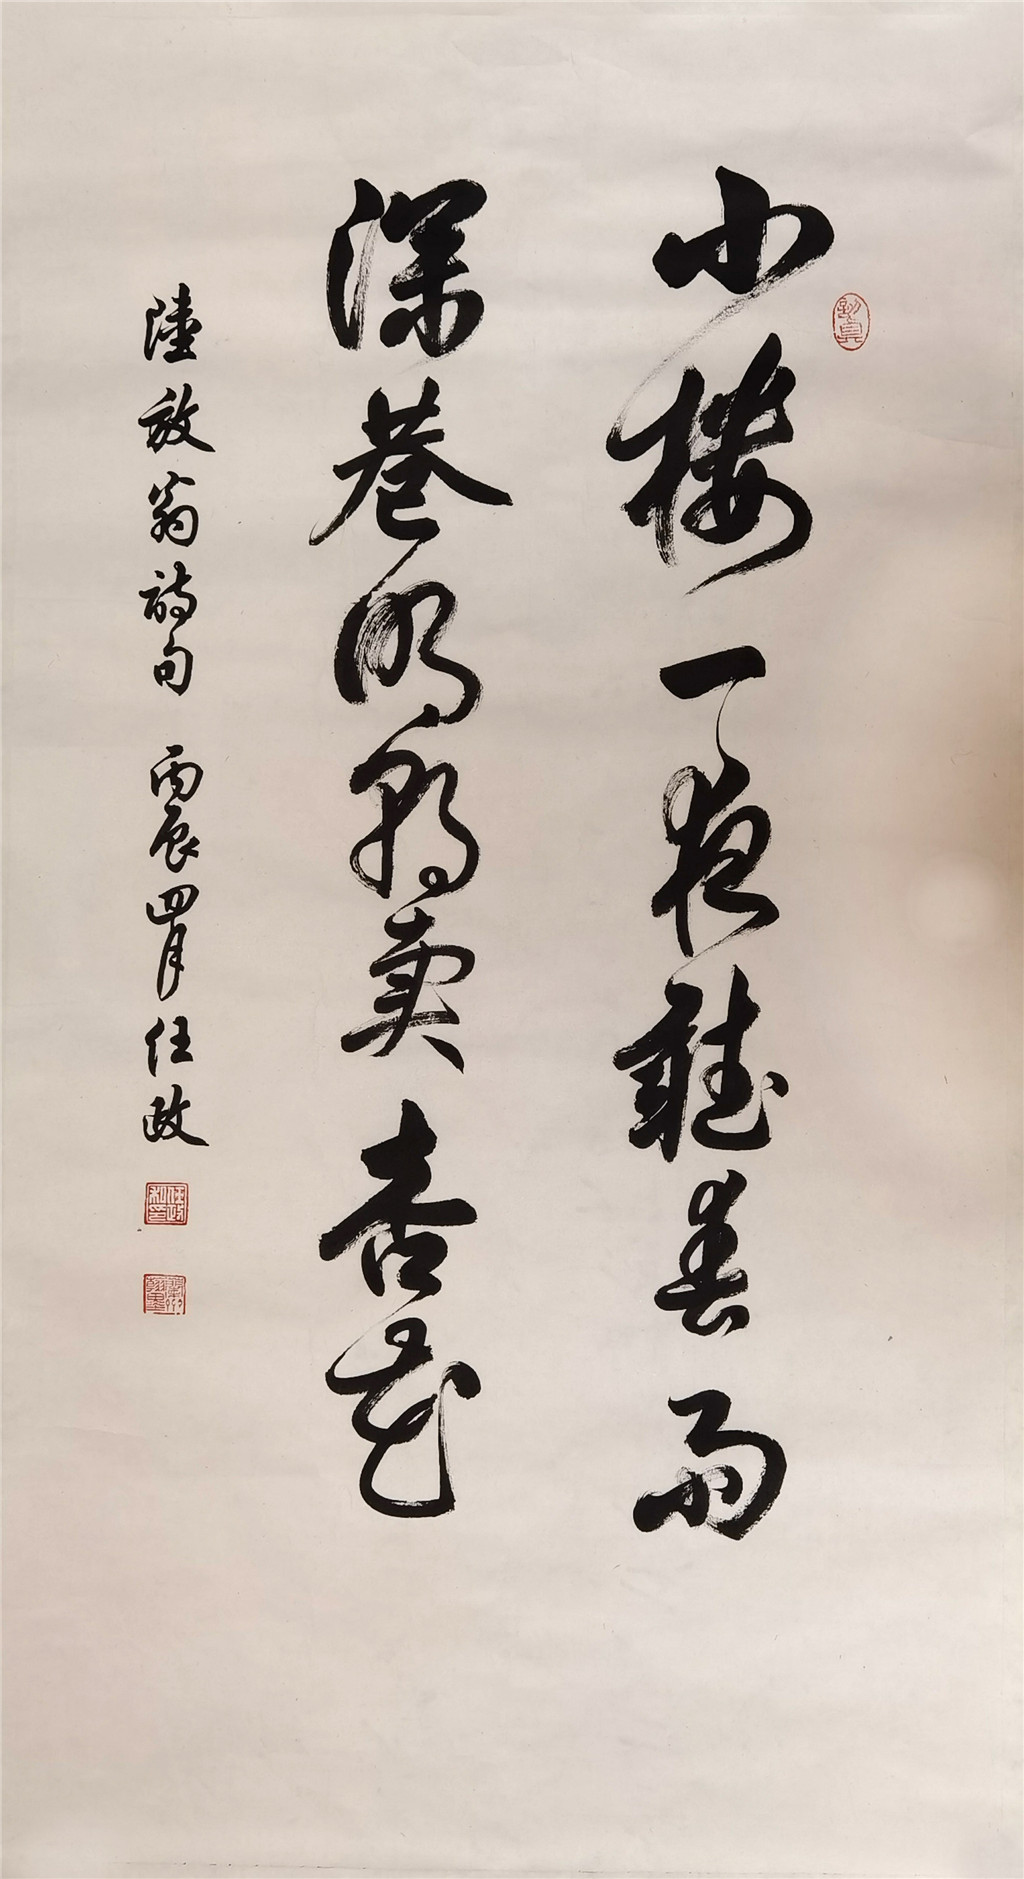 小楼一夜聽春雨
深巷明朝卖杏花
陸放翁詩句 丙辰四月任政